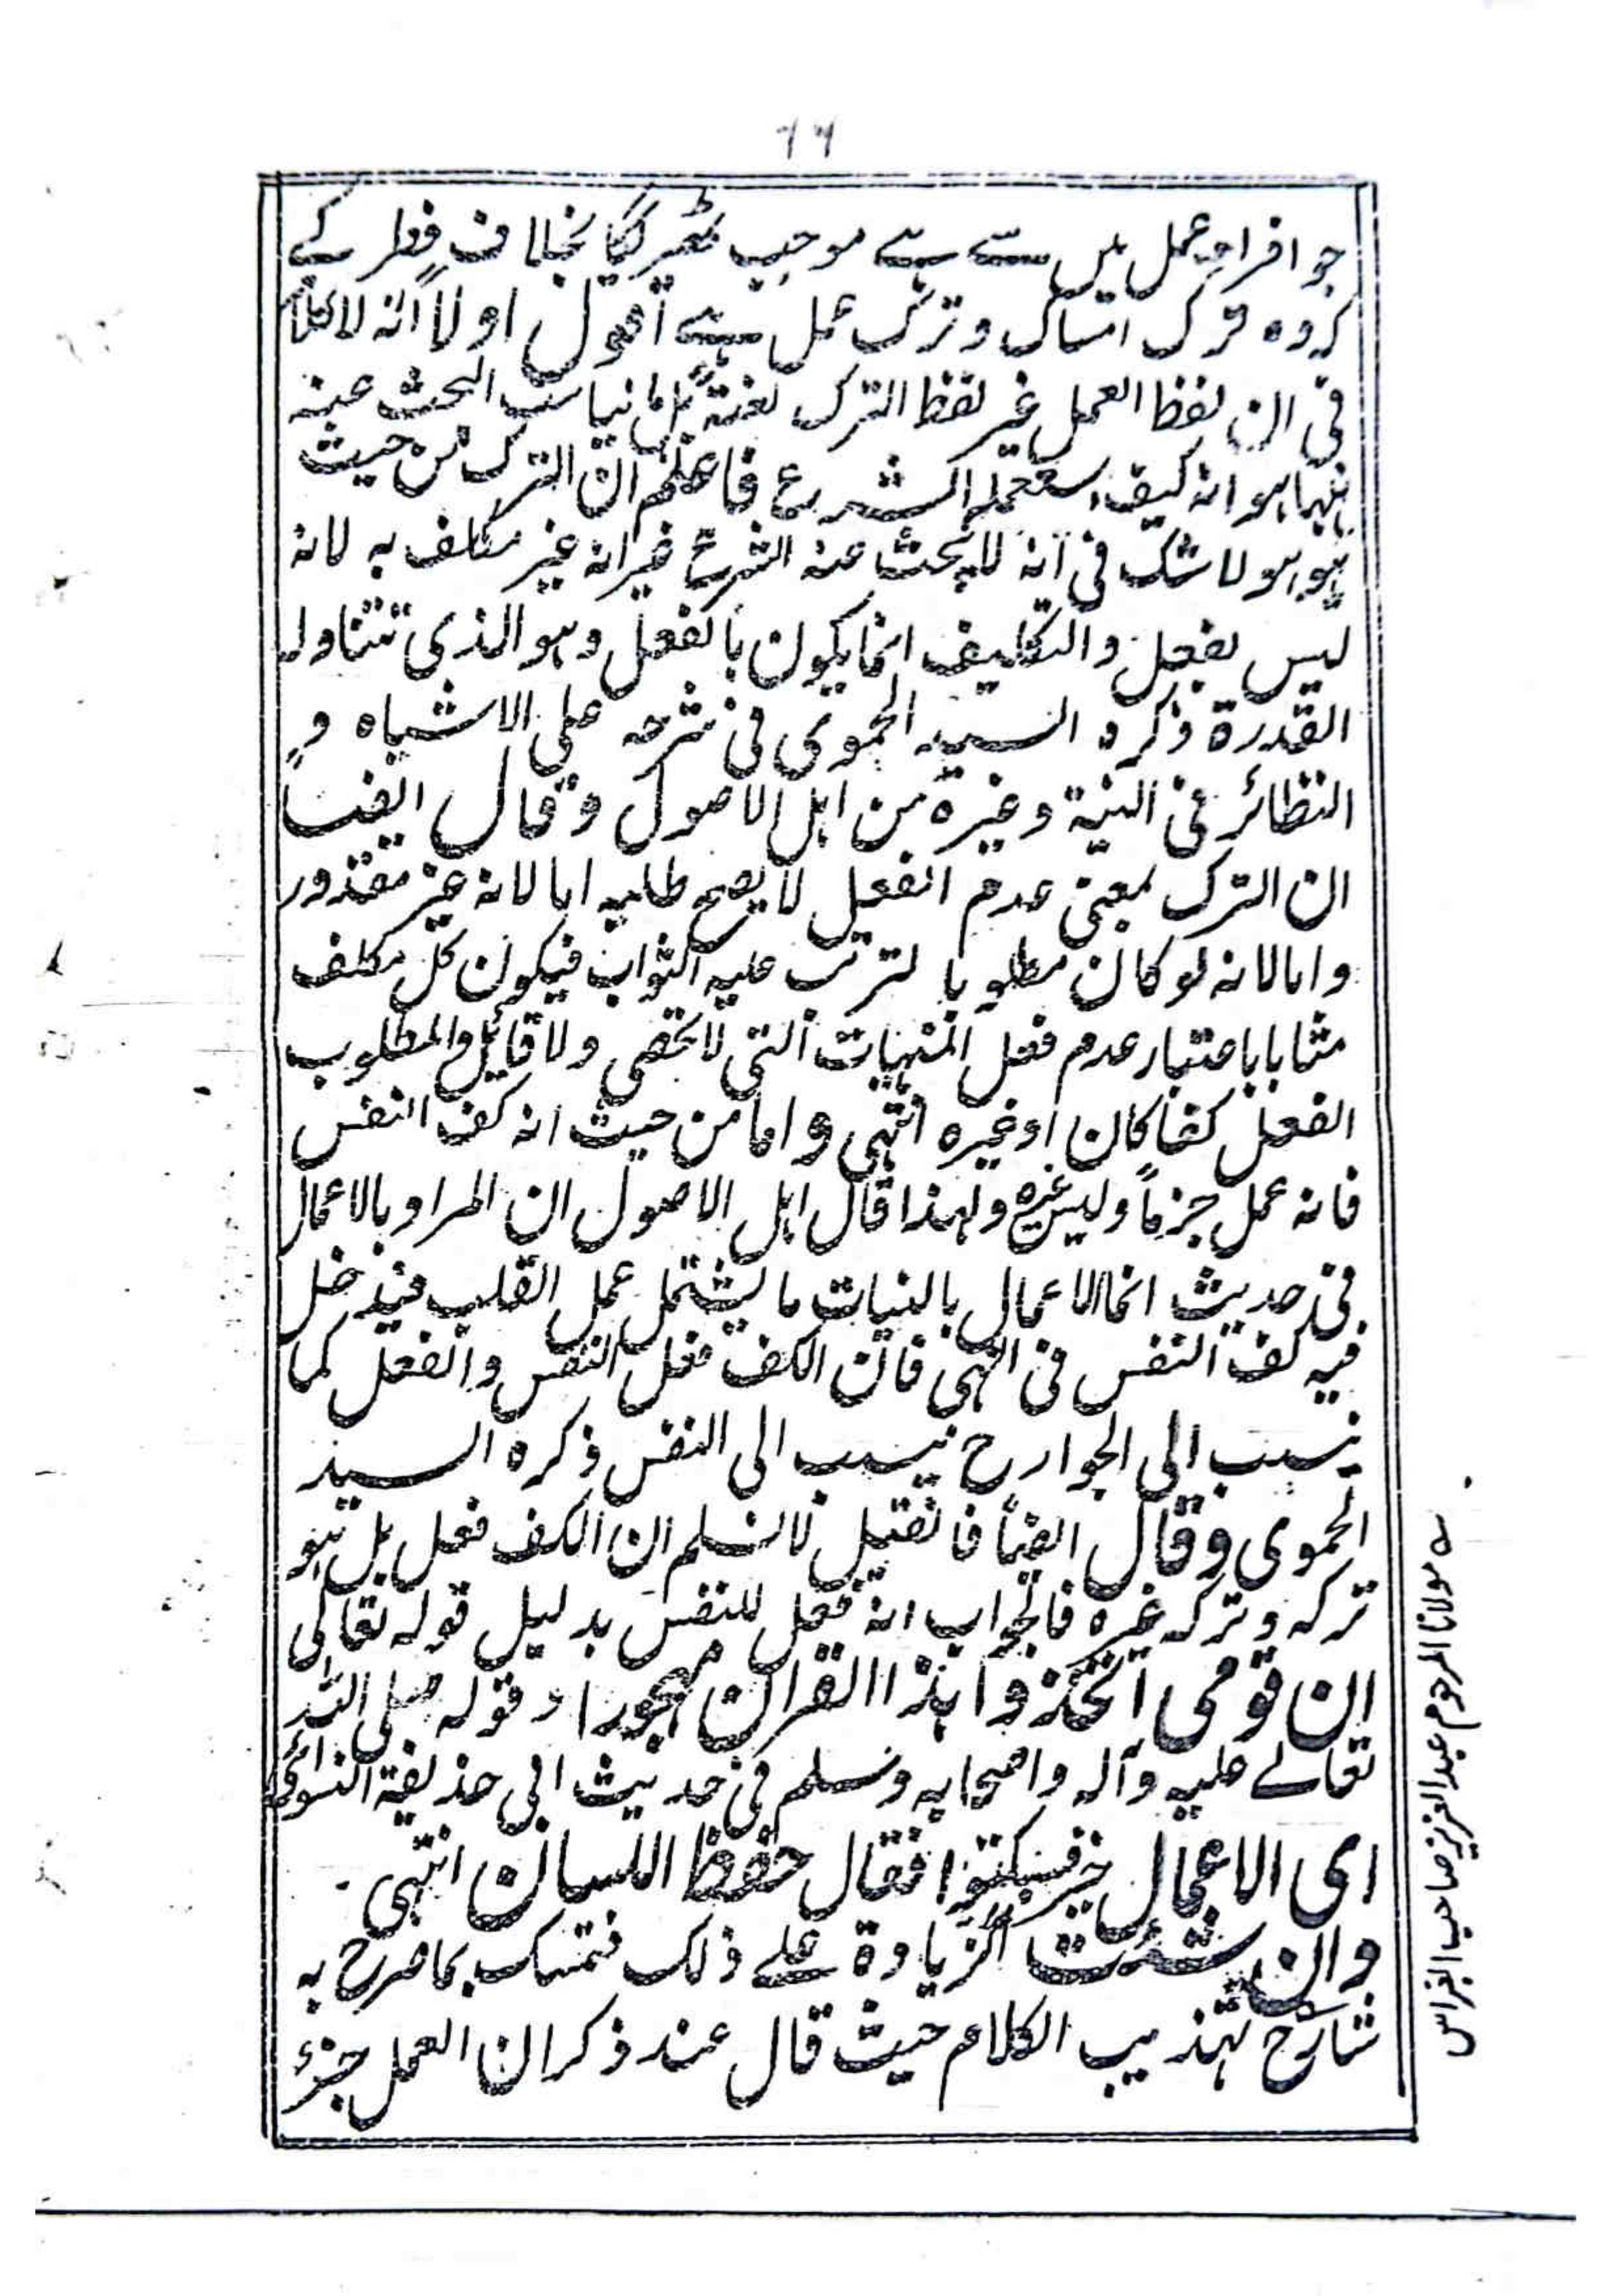 ۶۶
جو افراد عمل میں سے ہے موجب ٹھہرایگا بخلاف فطر کے
کہ وہ ترک امساک و ترک عمل ہے اقول اولاً انہ لا کلام
فی ان لفظ العمل غیر لفظ الترک لغتہ بل ما یناسب البحث عنہ
ہہنا ہو انہ کیف استعملہ الشرع فاعلم ان الترک من حیث
ہو ہو لا شک فی انہ لا یبحث عنہ الشرع غیر انہ غیر مکلف بہ لانہ
لیس بفعل والتکلیف انما یکون بالفعل وہو الذی تتناولہ
القدرة ذکرہ السید الحموی فی شرحہ علی الاشباہ و
النظائر فی النیة وغیرہ من اہل الاصول وقال ایضاً
ان الترک بمعنی عدم الفعل لا یصح طلبہ اما لانہ غیر مقدور
واما لانہ لو کان مطلوبا لترتب علیہ الثواب فیکون کل مکلف
مثابا باعتبار عدم فعل المنہیات التی لا تحصی ولا قایل والمطلوب
الفعل کفا کان او غیرہ انتہی واما من حیث انہ کف النفس
فانہ عمل جزماً ولیس غیرہ ولہذا قال اہل الاصول ان المراد بالاعمال
فی حدیث انما الاعمال بالنیات ما یشتمل عمل القلب فیدخل
فیہ کف النفس فی النہی فان الکف فعل النفس والفعل کما
ینسب الی الجوارح ینسب الی النفس ذکرہ السید
الحموی وقال ایضاً فان قیل لا نسلم ان الکف فعل بل ہو
ترکہ وترکہ غیرہ فالجواب انہ فعل للنفس بدلیل قولہ تعالی
ان قومی اتخذوا ہذا القران مہجورا وقولہ صلی اللہ
تعالے علیہ وآلہ واصحابہ وسلم فی حدیث ابی حذیفة
ای الاعمال خیر فسکتوا فقال حفظ اللسان انتہی۔
وان شئت الزیادة علے ذلک فتمسک بما صرح بہ
شارح تہذیب الکلام حیث قال عند ذکر ان العمل جزء
مولانا المرحوم عبد العزیز صاحب النبراس